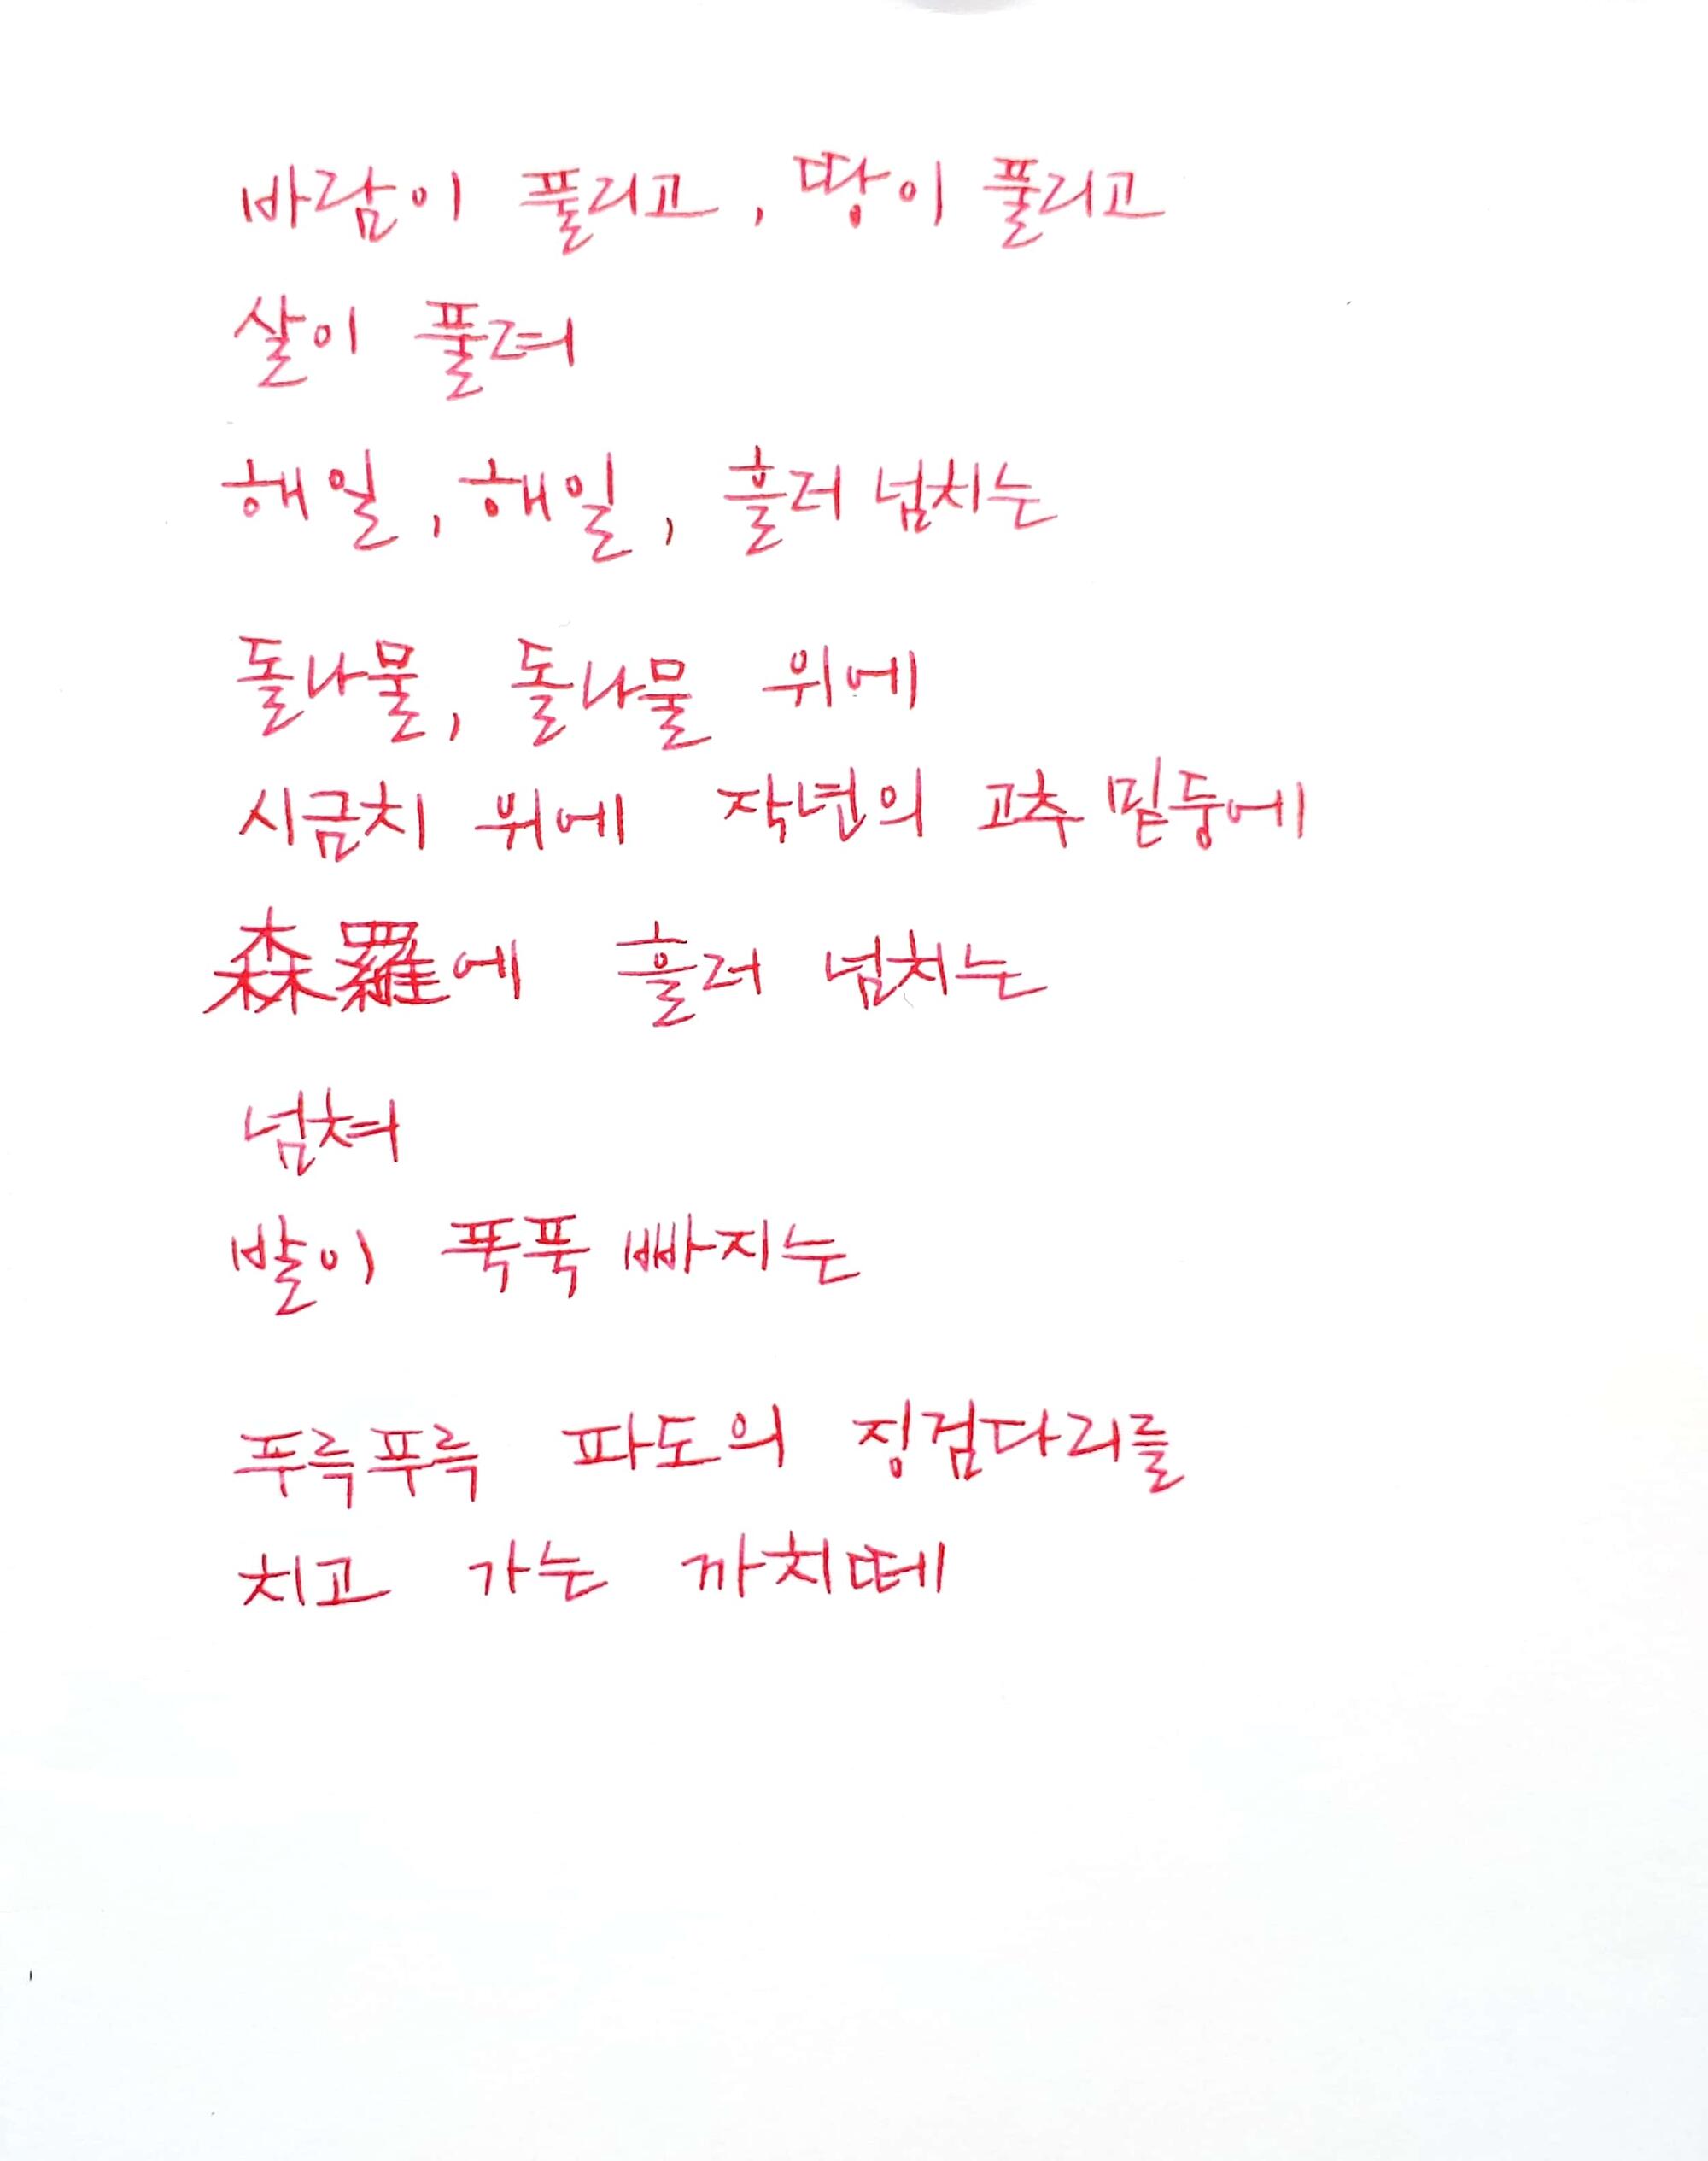 바람이 풀리고, 땅이 풀리고
살이 풀려
해일, 해일, 흘러 넘치는
돌나물, 돌나물 위에
시금치 위에 작년의 고추 밑둥에
森羅에 흘러 넘치는
넘쳐
발이 폭푹 빠지는
푸륵푸륵 파도의 징검다리를
치고 가는 까치떼